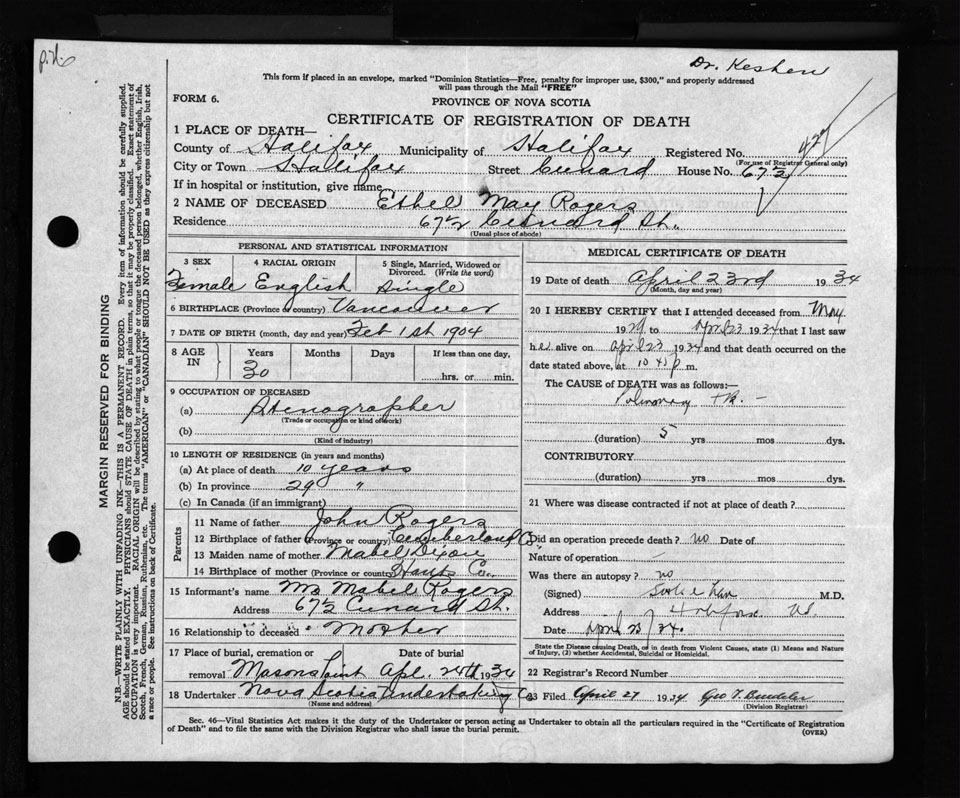 Dr. Keshen
This form if placed in an envelope, marked "Dominion Statistics—Free, penalty for improper use, $300," and properly addressed
will pass through the Mail "FREE"
FORM 6.
PROVINCE OF NOVA SCOTIA
CERTIFICATE OF REGISTRATION OF DEATH
427
1 PLACE OF DEATH—
County of Halifax Municipality of Halifax Registered No.
(For use of Registrar General only)
City or Town Halifax Street Cunard House No. 67½
If in hospital or institution, give name
2 NAME OF DECEASED Ethel May Rogers
Residence 67½ Cunard St.
(Usual place of abode)
PERSONAL AND STATISTICAL INFORMATION
3 SEX 4 RACIAL ORIGIN 5 Single, Married, Widowed or Divorced. (Write the word)
Female English Single
6 BIRTHPLACE (Province or country) Vancouver
7 DATE OF BIRTH (month, day and year) Feb 1st 1904
8 AGE IN Years Months Days If less than one day,
30 hrs. or min.
9 OCCUPATION OF DECEASED
(a) Stenographer
(Trade or occupation or kind of work)
(b)
(Kind of industry)
10 LENGTH OF RESIDENCE (in years and months)
(a) At place of death 10 years
(b) In province 29 "
(c) In Canada (if an immigrant)
Parents
11 Name of father John Rogers
12 Birthplace of father (Province or country) Cumberland Co.
13 Maiden name of mother Mabel Dixon
14 Birthplace of mother (Province or country) Hants Co.
15 Informant's name Mrs Mabel Rogers
Address 67½ Cunard St.
16 Relationship to deceased Mother
17 Place of burial, cremation or removal Date of burial
Masons Point Apl. 24th 1934
18 Undertaker Nova Scotia Undertaking Co
(Name and address)
MEDICAL CERTIFICATE OF DEATH
19 Date of death April 23rd 1934
(Month, day and year)
20 I HEREBY CERTIFY that I attended deceased from May
1929 to April 23 1934 that I last saw
her alive on April 23 1934 and that death occurred on the
date stated above, at 10 45 p m.
The CAUSE of DEATH was as follows:—
Pulmonary TB. –
(duration) 5 yrs mos dys.
CONTRIBUTORY
(duration) yrs mos dys.
21 Where was disease contracted if not at place of death?
Did an operation precede death? no Date of
Nature of operation
Was there an autopsy? no
(Signed) M.D.
Address
Date April 25/34.
State the Disease causing Death, or in death from Violent Causes, state (1) Means and Nature
of Injury, (2) whether Accidental, Suicidal or Homicidal.
22 Registrar's Record Number
23 Filed April 27 1934 Geo T.
(Division Registrar)
Sec. 46—Vital Statistics Act makes it the duty of the Undertaker or person acting as Undertaker to obtain all the particulars required in the "Certificate of Registration
of Death" and to file the same with the Division Registrar who shall issue the burial permit.
(OVER)
MARGIN RESERVED FOR BINDING
N.B. WRITE PLAINLY WITH UNFADING INK—THIS IS A PERMANENT RECORD. Every item of information should be carefully supplied.
AGE should be stated EXACTLY. PHYSICIANS should STATE CAUSE OF DEATH in plain terms, so that it may be properly classified. Exact statement of
OCCUPATION is very important. RACIAL ORIGIN will be described by stating to what people or tongue the deceased person belonged, whether English, Irish,
Scotch, French, German, Russian, Ruthenian, etc. The terms "AMERICAN" or "CANADIAN" SHOULD NOT BE USED as they express citizenship but not
a race or people. See instructions on back of Certificate.